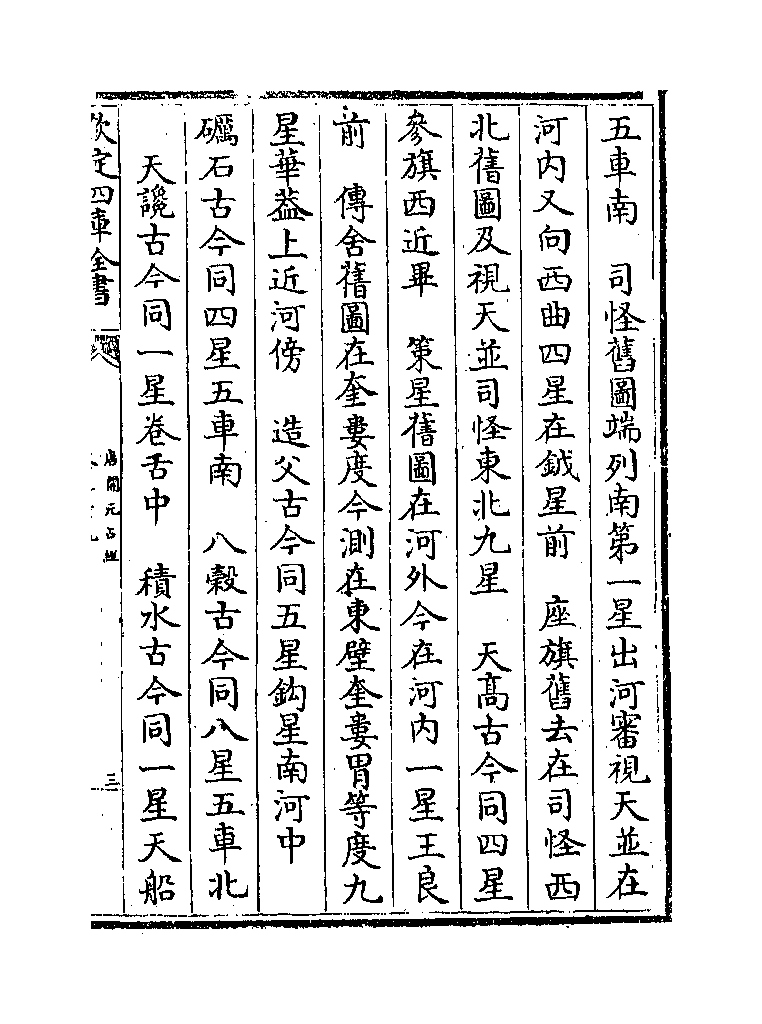 五車南　司怪舊圖端列南第一星出河審視天並在
河內又向西曲四星在鉞星前　座旗舊去在司怪西
北舊圖及視天並司怪東北九星　天高古今同四星
參旗西近畢　策星舊圖在河外今在河內一星王良
前　傳舍舊圖在奎婁度今測在東壁奎婁胃等度九
星華葢上近河傍　造父古今同五星鈎星南河中
礪石古今同四星五車南　八穀古今同八星五車北
天讒古今同一星卷舌中　積水古今同一星天船
欽定四庫全書
唐開元占經
三